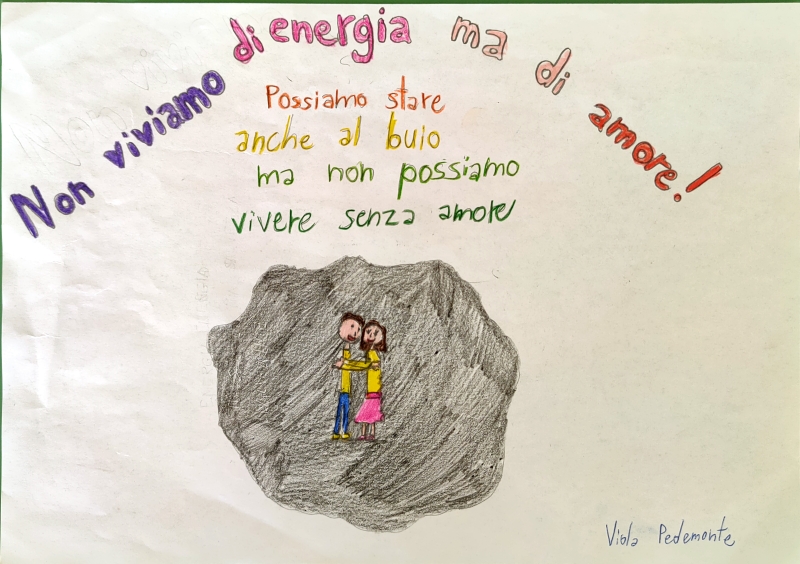 Non viviamo di energia ma di amore!
Possiamo stare
anche al buio
ma non possiamo
vivere senza amore
Viola Pedemonte